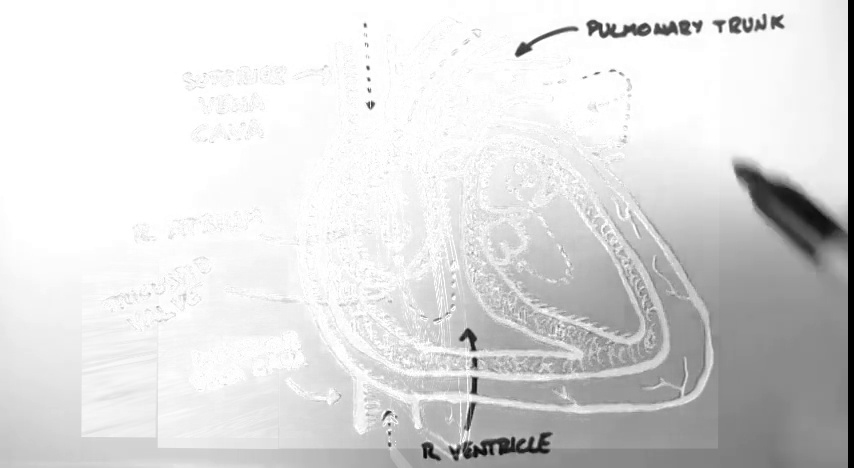 PULMONARY TRUNK
SUPERIOR
VENA
CAVA
R. ATRIUM
TRICUSPID
VALVE
R. VENTRICLE